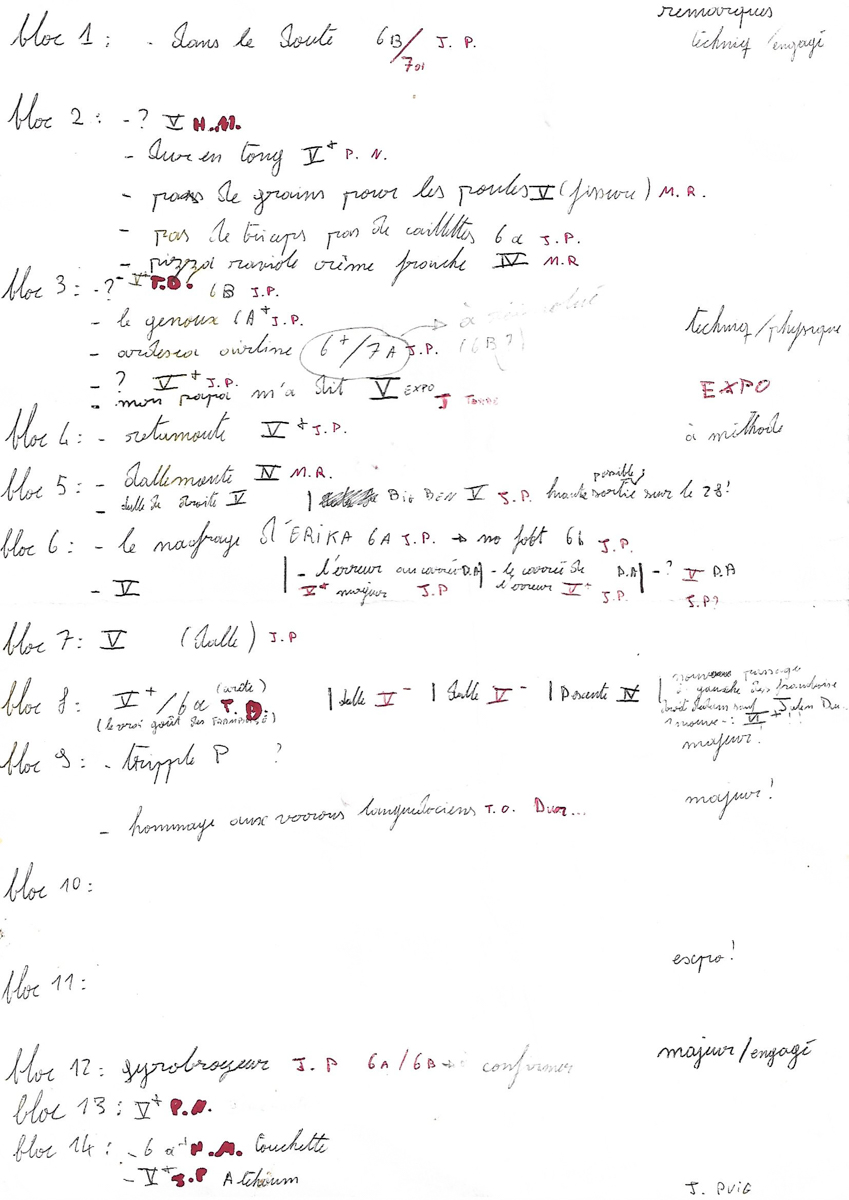 remarques
bloc 1 : - dans le doute 6B/7a J. P. techniq/engagé
bloc 2 : - ? V H.M.
- dur en tong V+ P. N.
- pas de grains pour les poules V (fissure) M. R.
- pas de triceps pas de caillettes 6a J. P.
- pizza raviole crème fraiche IV M.R
bloc 3 : - ? V+ T.D. 6B J.P.
- le genoux 6A+ J.P. techniq/physique
- ardesca airline 6+/7A J.P. (6B?)
- ? V+ J.P.
- mon papa m'a dit V EXPO J EXPO
bloc 4 : - retumoute V+ J.P. à méthode
bloc 5 : - dallemoute IV M.R.
- dalle de droite V | BIG BEN V J.P. haute sortie possible sur le 28!
bloc 6 : - le naufrage d'ERIKA 6A J.P. → no foot 6b J.P.
- V | - l'erreur au carré D.A | - le carré de D.A | - ? V D.A
V+ majeur J.P l'erreur V+ J.P. J.P?
bloc 7 : V (dalle) J.P
bloc 8 : V+/6a (arête) T.D. | dalle V- | dalle V- | Descente IV | nouveau passage
(le vrai goût des
à gauche des framboise
majeur!
bloc 9 : - tripple P ?
majeur!
- hommage aux verrous languedociens T.D. Dur...
bloc 10 :
expo!
bloc 11 :
majeur/engagé
bloc 12 : gyrobroyeur J. P 6A/6B → à confirmer
bloc 13 : V+ P.N.
bloc 14 : - 6a+ H.M. Couchette
- V+ J.P Atchoum
J. PUIG